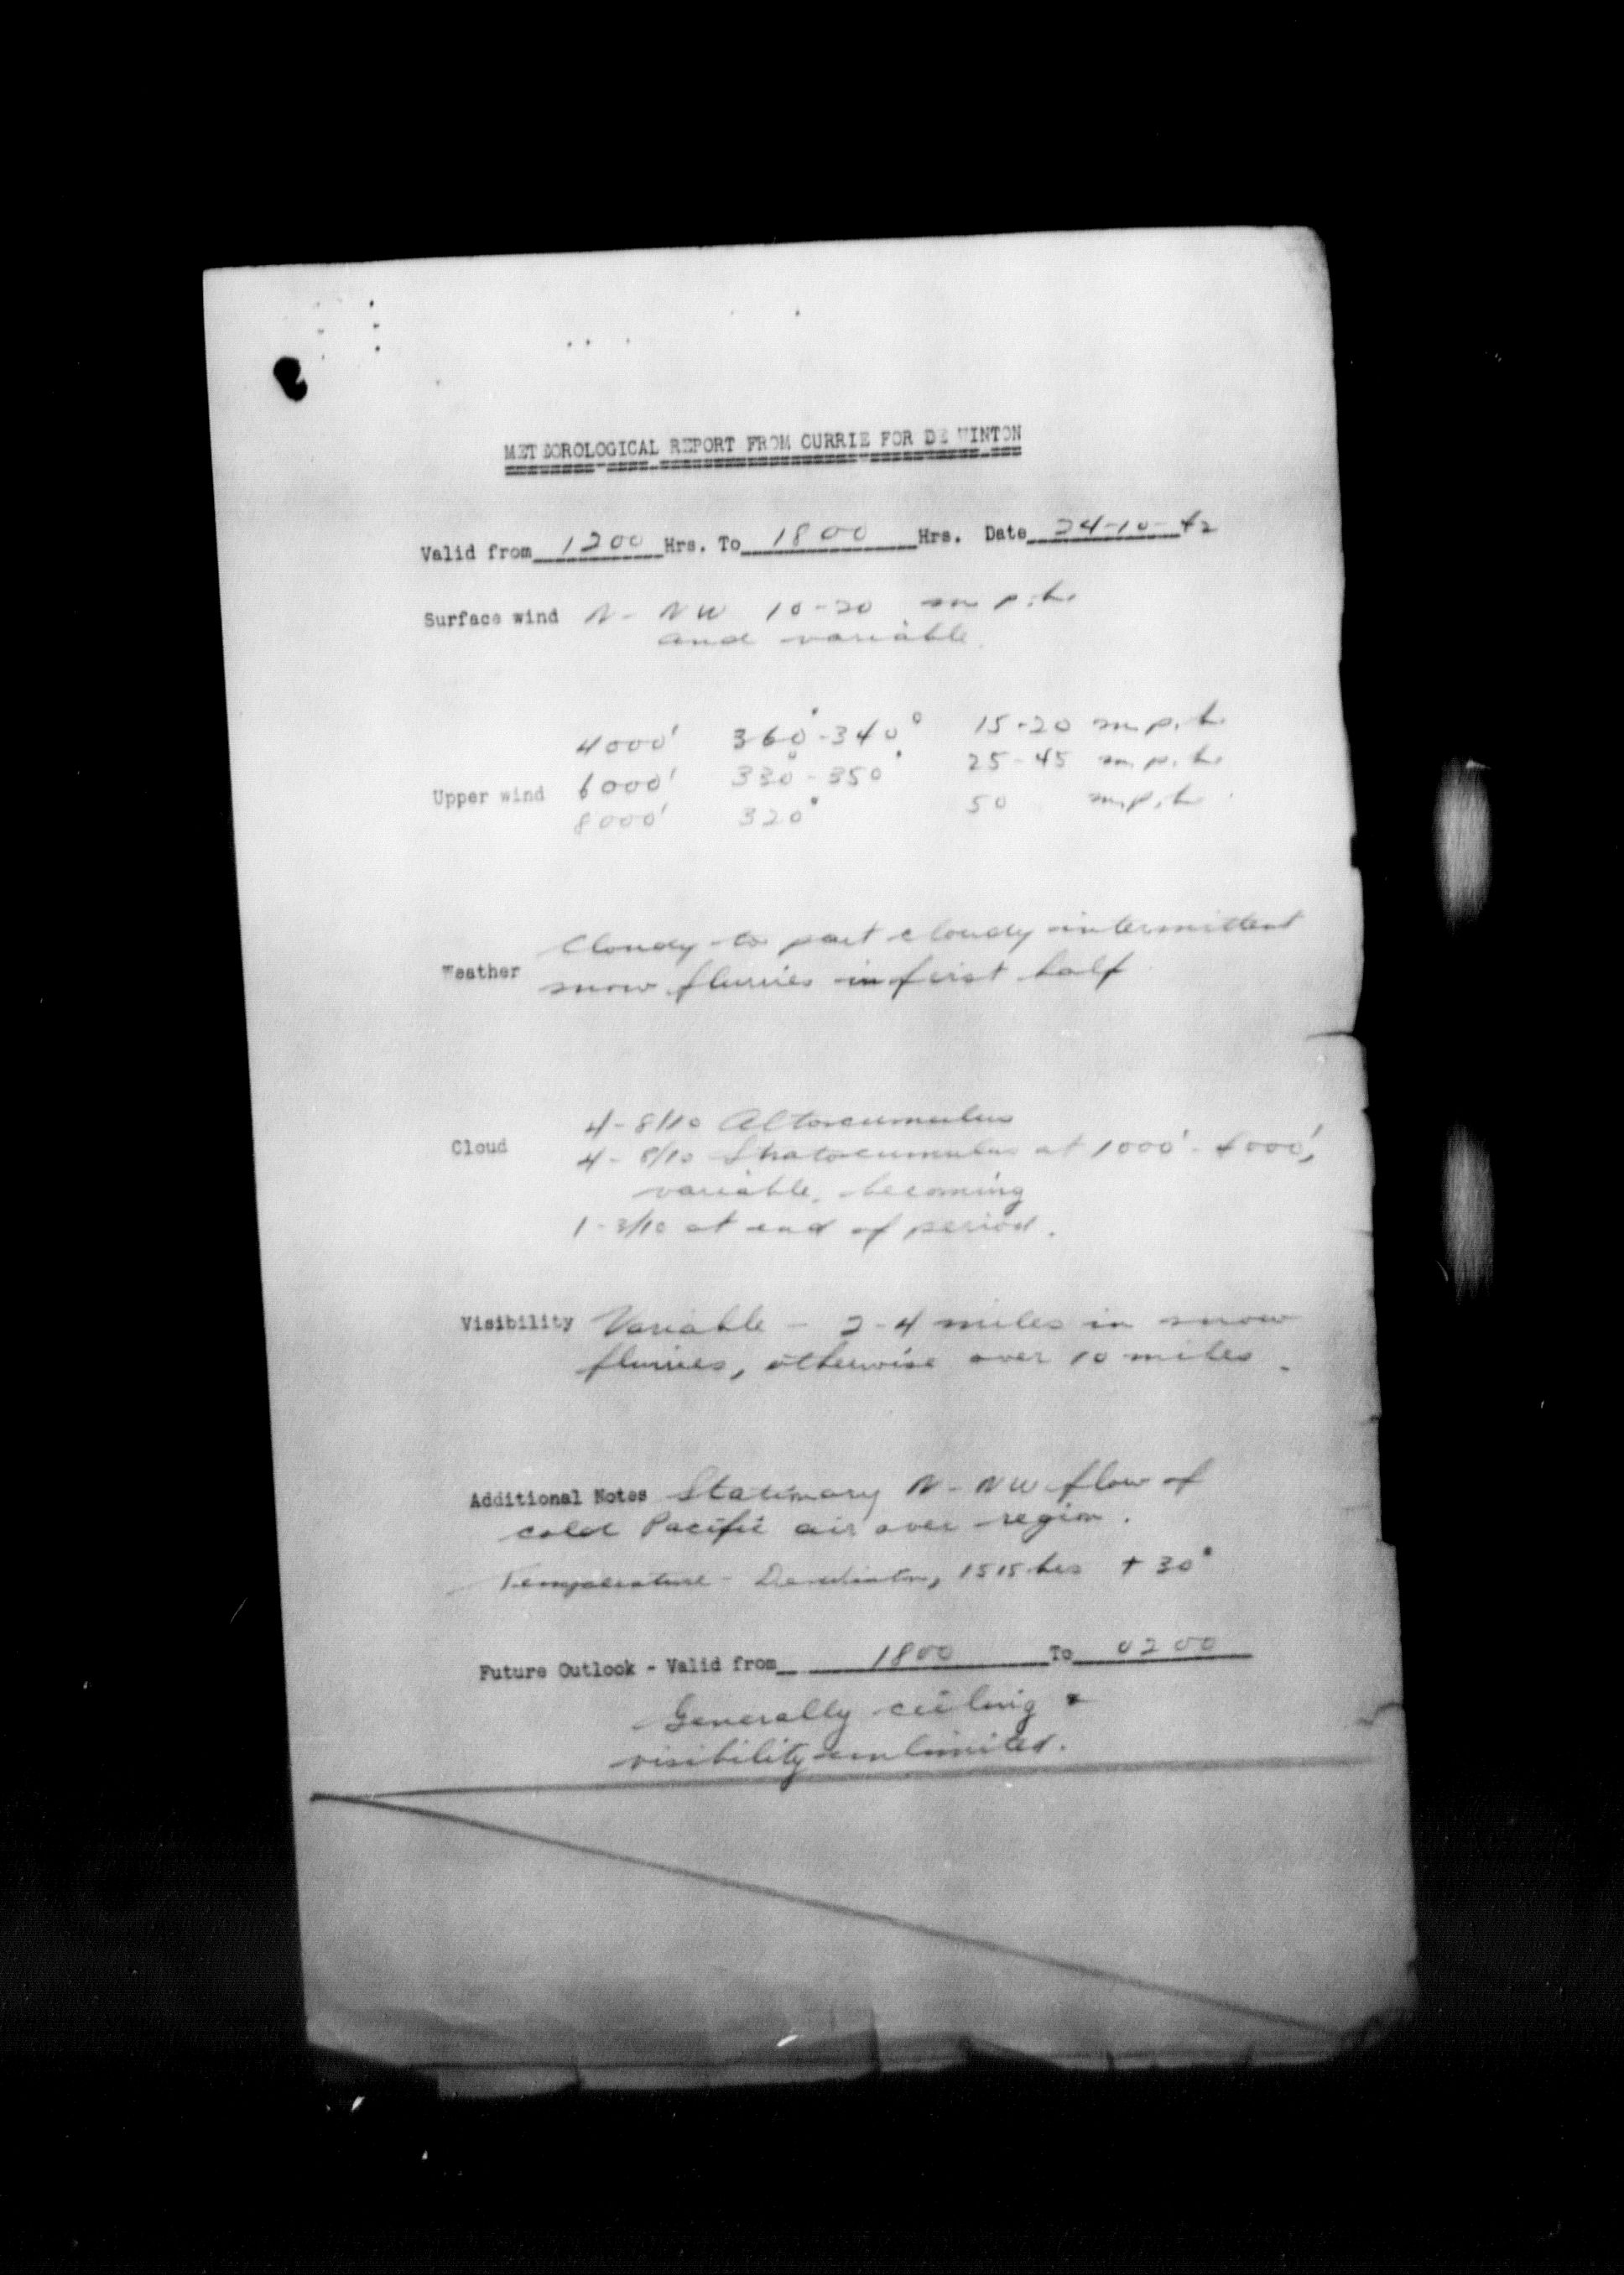 METEOROLOGICAL REPORT FROM CURRIE FOR DE WINTON
Valid from 1200 Hrs. To 1800 Hrs. Date 24-10-42
Surface wind N - NW 10-20 m.p.h.
and variable
4000' 360° - 340° 15-20 m.p.h.
Upper wind 6000' 330° - 350° 25-45 m.p.h.
8000' 320° 50 m.p.h.
Cloudy to part cloudy intermittent
Weather snow flurries in first half
4 - 8/10 Altocumulus
Cloud 4 - 8/10 Stratocumulus at 1000' - 4000',
variable, becoming
1 - 3/10 at end of period.
Visibility Variable - 2-4 miles in snow
flurries, otherwise over 10 miles.
Additional Notes Stationary N - NW flow of
cold Pacific air over region.
Temperature - Dewinton, 1515 hrs + 30°
Future Outlook - Valid from 1800 To 0200
Generally ceiling &
visibility unlimited.